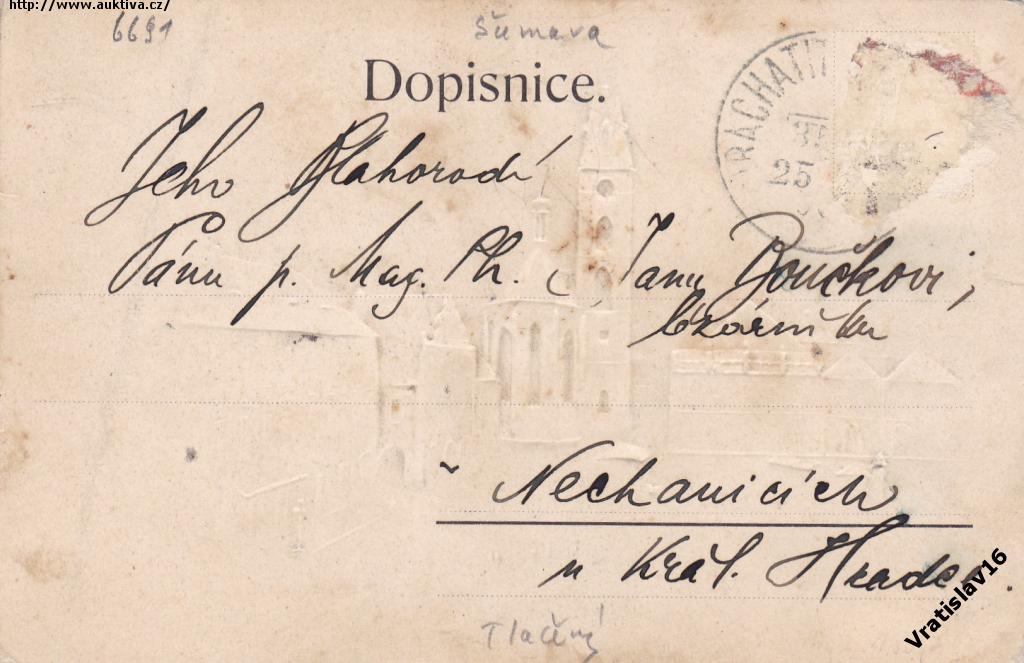 http://www.auktiva.cz/
6691
Šumava
Dopisnice.
PRACHATI
25
Jeho Blahorodí
Pánu p. Mag. Ph. Janu Boučkovi,
lékárníku
v Nechanicích
u Král. Hradce.
Tlačený
Vratislav16